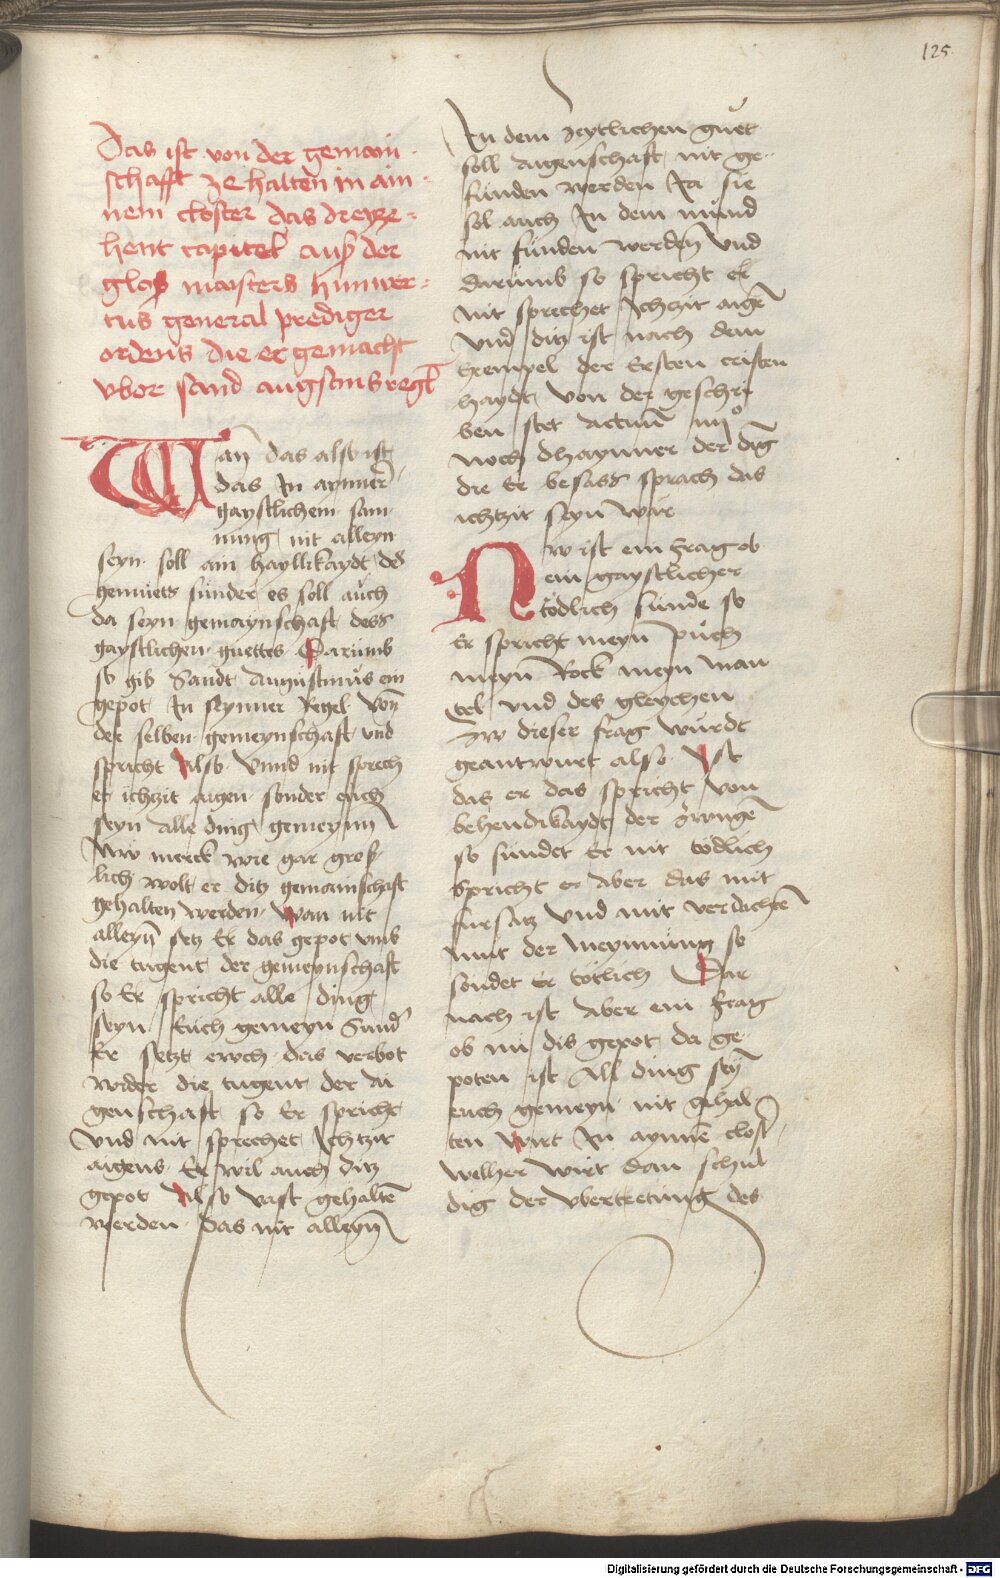 125
Das ist von der gemain
schafft ze halten in ain
nem closter das dreyze
hent capitel auß der
gloß maisters humer
tus general prediger
ordens die er gemacht
vber sand augstins regl
Wan̄ das also ist
das In aynner
gaystlichem sam
nung nit alleyn
seyn soll ain hayllikaydt des
gemuets sunder es soll auch
da seyn gemaynschaft dess
gaystlichen guettes Darumb
so gib Sandt Augustinus ein
gepot In seynner Regel Von
der selben gemeynschaft vnd
spricht Also Vnnd nit sprech
et ichtzit aigen sonder euch
seyn alle ding gemeynn
Nw merck wie gar groß
lich wolt er ditz gemainschaft
gehalten werden wan nit
alleyn̄ setz Er das gepot vmb
die tugent der gemeynschaft
so Er spricht alle ding
seyn Euch gemeyn Sund̾
Er setzt ewch das verbot
wider die tugent der ai
genschaft so Er spricht
Vnd nit sprechet Ichtzit
aigens Er wil auch ditz
gepot Also vast gehaltē
werden das nit alleyn̄
In dem zeytlichen guet
soll aigenschaft nit ge
funden werden Ja sie
sol auch In dem mund
nit funden werdn̄ Vnd
darumb so spricht er
nit sprechet Ichtzit aigē
Vnd ditz ist nach dem
Exempel der Ersten cristen
haydt von der geschri
ben stet Actuū iiij°
noch dhaynner der dīg
die Er besass sprach das
ichtzit seyn wär
Nw ist ein frag ob
ein gaystlicher
tödlich sunde so
Er spricht meyn puch
meyn Rock meyn man
tel Vnd des gleychen
Zw dieser frag wurdt
geantwurt also Ist
das er das spricht von
behendikaydt der Zwngē
so sundet Er nit tödlich
Spricht er Aber das mit
fursatz Vnd mit verdachtē
mut der meynnung so
sondet Er tötlich Dar
nach ist Aber ein frag
ob nu dis gepot da ge
poten ist All ding sey
euch gemeyn nit gehal
ten wirt In aynnē clost̾
welher wirt dan schul
dig der vbertretung des
Digitalisierung gefördert durch die Deutsche Forschungsgemeinschaft - DFG